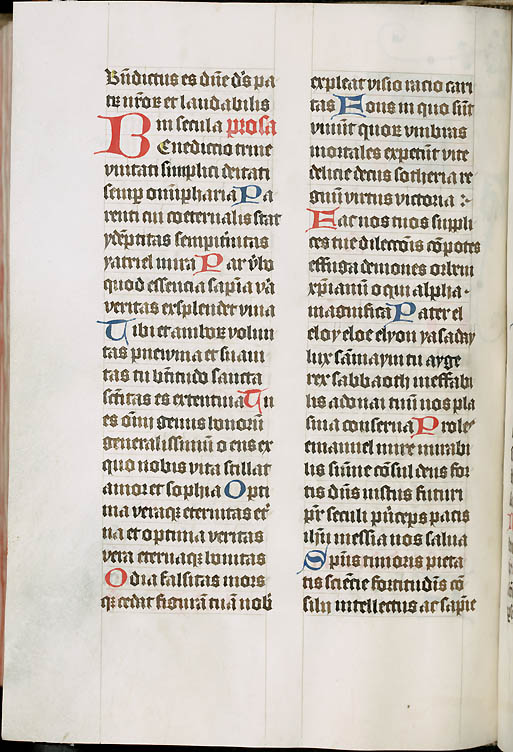 Bn̄dictus es dn̄e ds̄ pa
tr̄ nr̄or et laudabilis
in secula prosa
Benedictio trine
unitati simplici deitati
semp om̄ipharia Pa
renti cui coeternalis stat
ydēptitas sempit̄nitas
yatriel mira Par v̄bo
quod essencia sapīa v̄a
veritas exsplendet vina
Tibi et amborꝝ volun
tas pneuma et suaui
tas tu bn̄titudo sancta
sc̄titas es extentiua Tu
es om̄i genus bonorū
generalissimū o ens ex
quo nobis vita stillat
amor et sophia Opti
ma veraqꝫ eternitas et̄
na et optima veritas
vera eternaqꝫ bonitas
Odia falsitas mors
qꝫ cedat figurā tuā nob̄
expleat visio racio cari
tas Eous in quo sūt
viuūt quorꝝ vmbras
mortales expetūt vite
delicie decus sotheria re
gnū virtus victoria :-
Eac nos tuos suppli
ces tue dilectōis cōpotes
effuga demones orbem
xp̄ianū o qui alpha
magnifica Pater el
eloy eloe elyon ya saday
lux sā maym tu ayge
rex sabbaoth ineffabi
lis adonai tuū nos pla
sma conserua Proles
emanuel mire mirabi
lis sūme cōsul deus for
tis dn̄s iustus futuri
pr̄ seculi pn̄ceps pacis
ihū messia nos salua
Sp̄us timoris pieta
tis sciēcie fortitudīs cō
silij intellectus ac sapīe